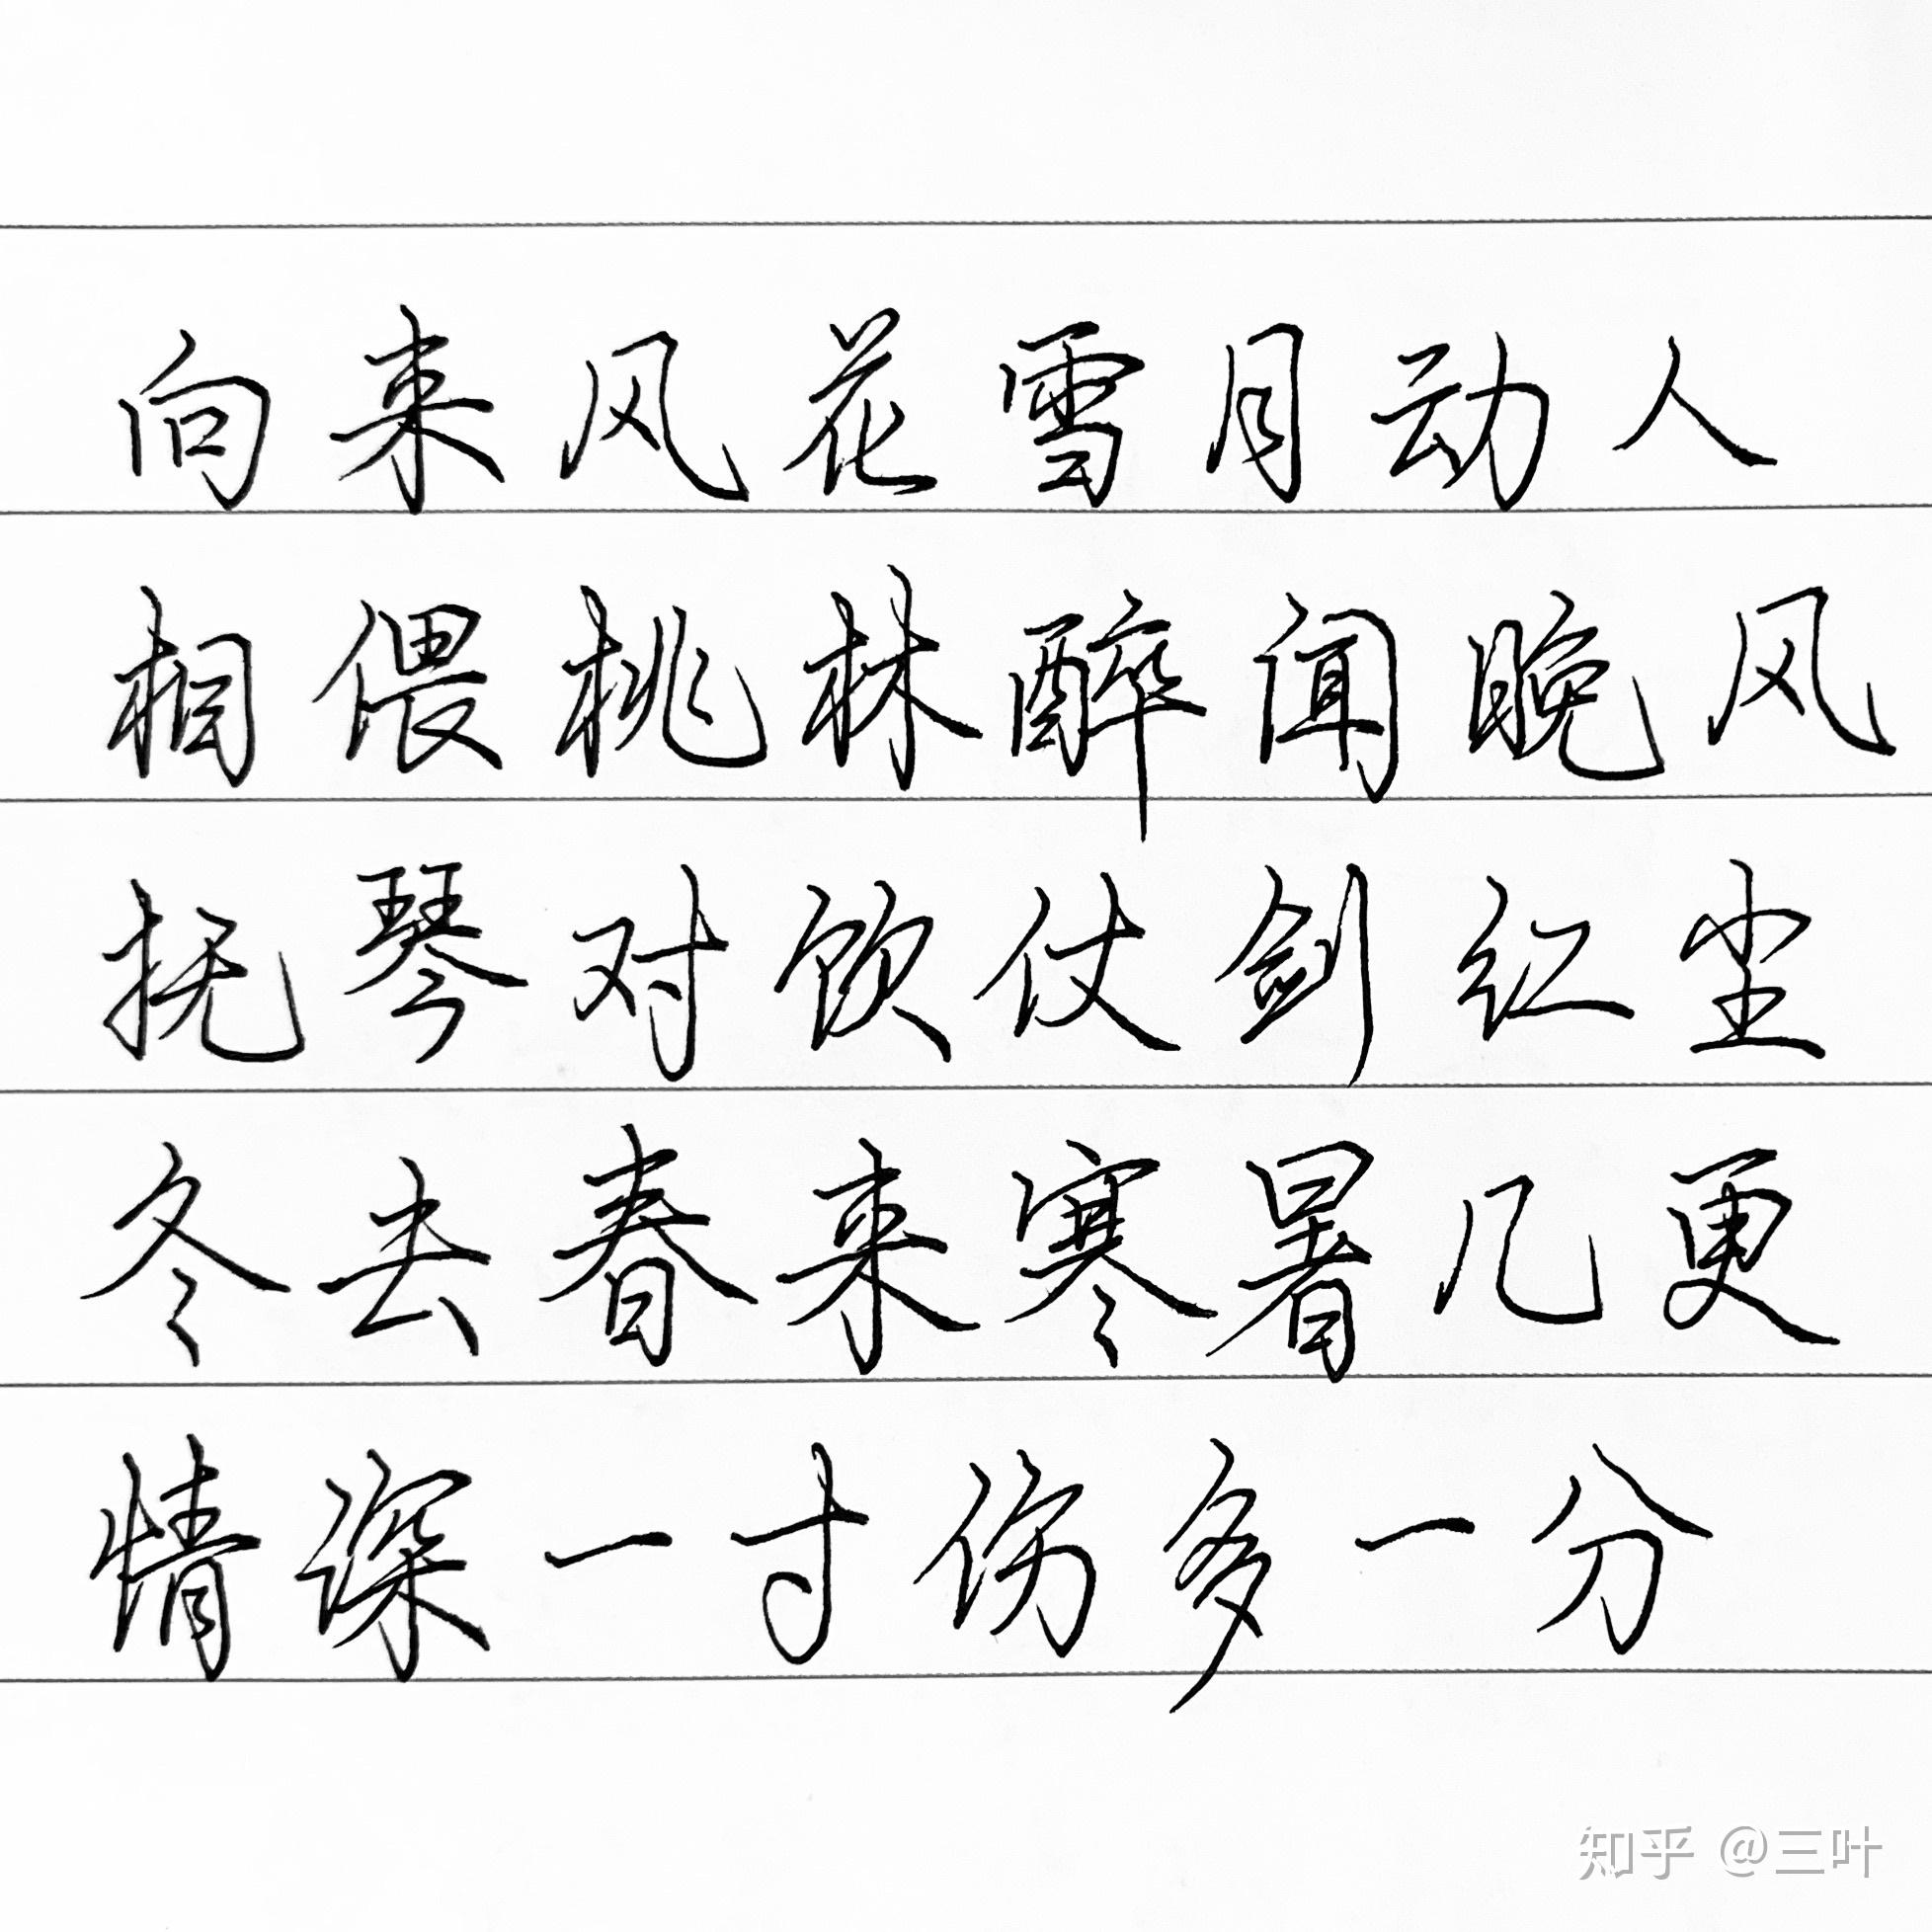 向来风花雪月动人
相偎桃林醉闻晚风
抚琴对饮仗剑红尘
冬去春来寒暑几更
情深一寸伤多一分
知乎 @三叶